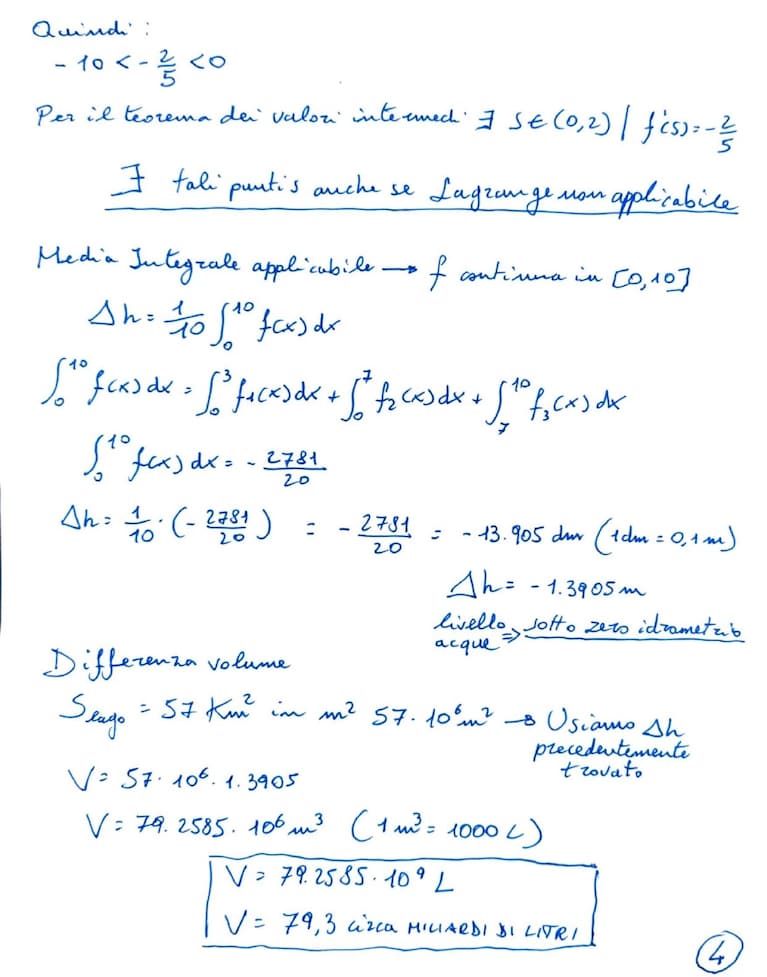 Quindi:
- 10 < - 2/5 < 0
Per il teorema dei valori intermedi ∃ s ∈ (0,2) | f'(s) = - 2/5
∃ tali punti s anche se Lagrange non applicabile
Media Integrale applicabile → f continua in [0,10]
Δh = 1/10 ∫₀¹⁰ f(x) dx
∫₀¹⁰ f(x) dx = ∫₀³ f₁(x) dx + ∫₀⁷ f₂(x) dx + ∫₇¹⁰ f₃(x) dx
∫₀¹⁰ f(x) dx = - 2781/20
Δh = 1/10 · (- 2781/20) = - 2781/20 = - 13.905 dm (1dm = 0,1 m)
Δh = - 1.3905 m
livello acque ⇒ sotto zero idrometrico
Differenza volume
S lago = 57 Km² in m² 57 · 10⁶ m² → Usiamo Δh
precedentemente
trovato
V = 57 · 10⁶ · 1.3905
V = 79.2585 · 10⁶ m³ (1 m³ = 1000 L)
V = 79.2585 · 10⁹ L
V = 79,3 circa MILIARDI DI LITRI
4